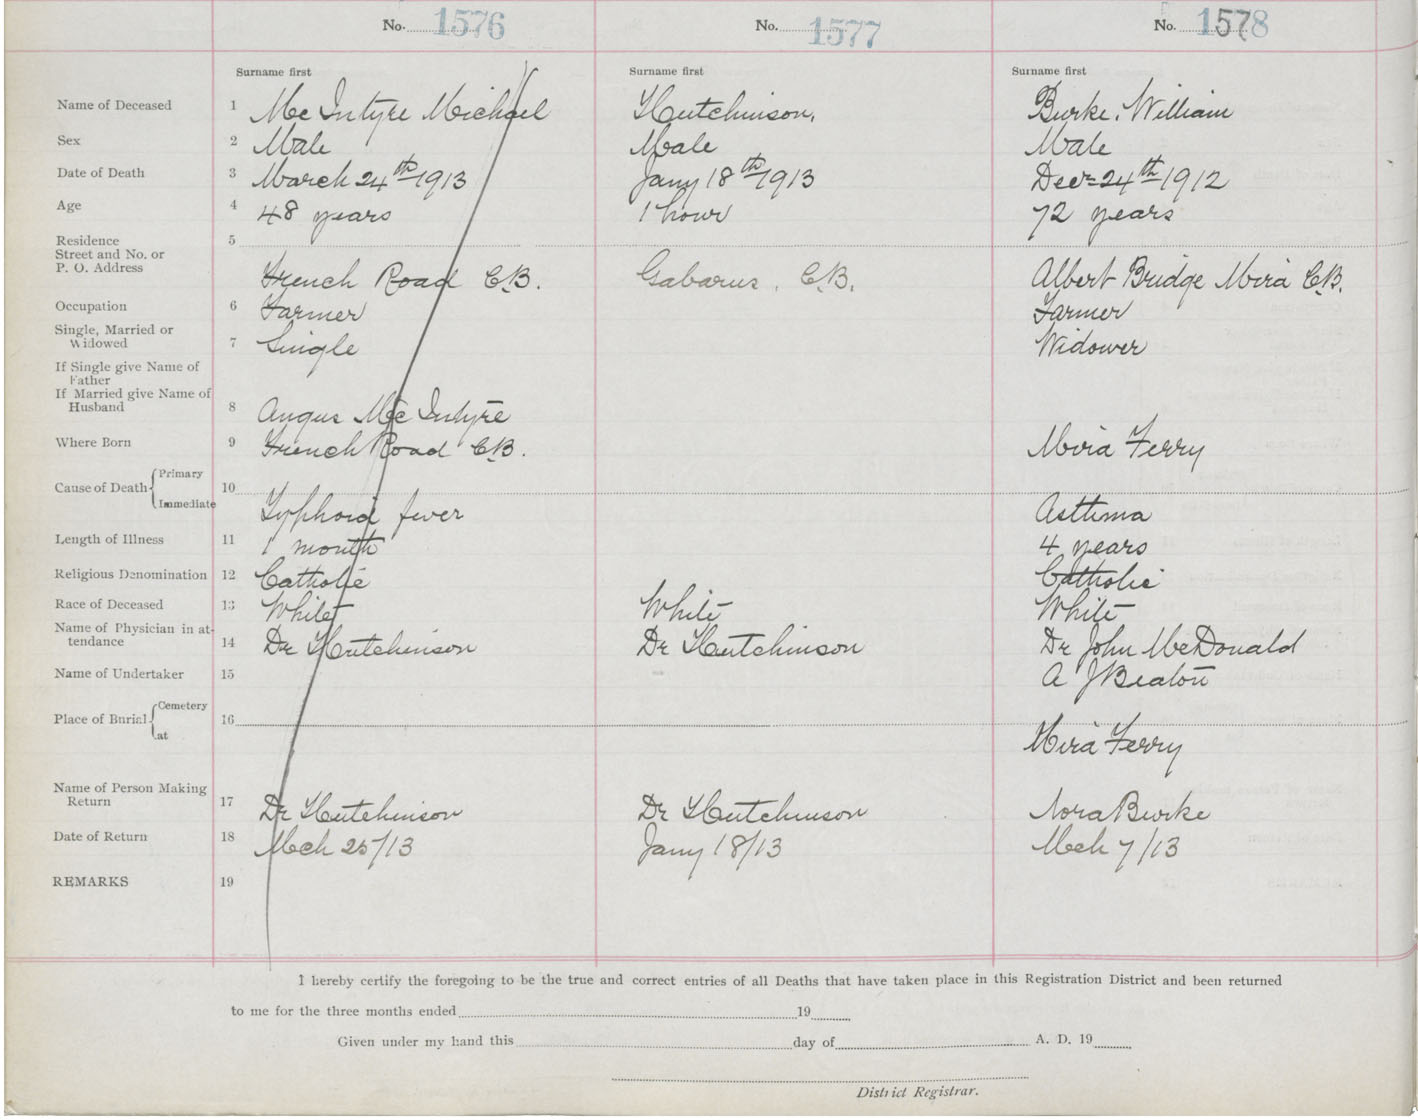 No. 1576 No. 1577 No. 1578
Surname first Surname first Surname first
Name of Deceased 1 Mc Intyre Michael Hutchinson, Burke, William
Sex 2 Male Male Male
Date of Death 3 March 24th 1913 Jany 18th 1913 Dec 24th 1912
Age 4 48 years 1 hour 72 years
Residence 5
Street and No. or
P. O. Address French Road C.B. Gabarus, C.B. Albert Bridge Mira C.B.
Occupation 6 Farmer Farmer
Single, Married or
Widowed 7 Single Widower
If Single give Name of
Father
If Married give Name of
Husband 8 Angus McIntyre
Where Born 9 French Road C.B. Mira Ferry
Cause of Death Primary 10
Immediate Typhoid fever Asthma
Length of Illness 11 1 month 4 years
Religious Denomination 12 Catholic Catholic
Race of Deceased 13 White White White
Name of Physician in at-
tendance 14 Dr Hutchinson Dr Hutchinson Dr John McDonald
Name of Undertaker 15 A J Beaton
Place of Burial Cemetery 16
at Mira Ferry
Name of Person Making
Return 17 Dr Hutchinson Dr Hutchinson Nora Burke
Date of Return 18 Mch 25/13 Jany 18/13 Mch 7/13
REMARKS 19
I hereby certify the foregoing to be the true and correct entries of all Deaths that have taken place in this Registration District and been returned
to me for the three months ended 19
Given under my hand this day of A. D. 19
District Registrar.